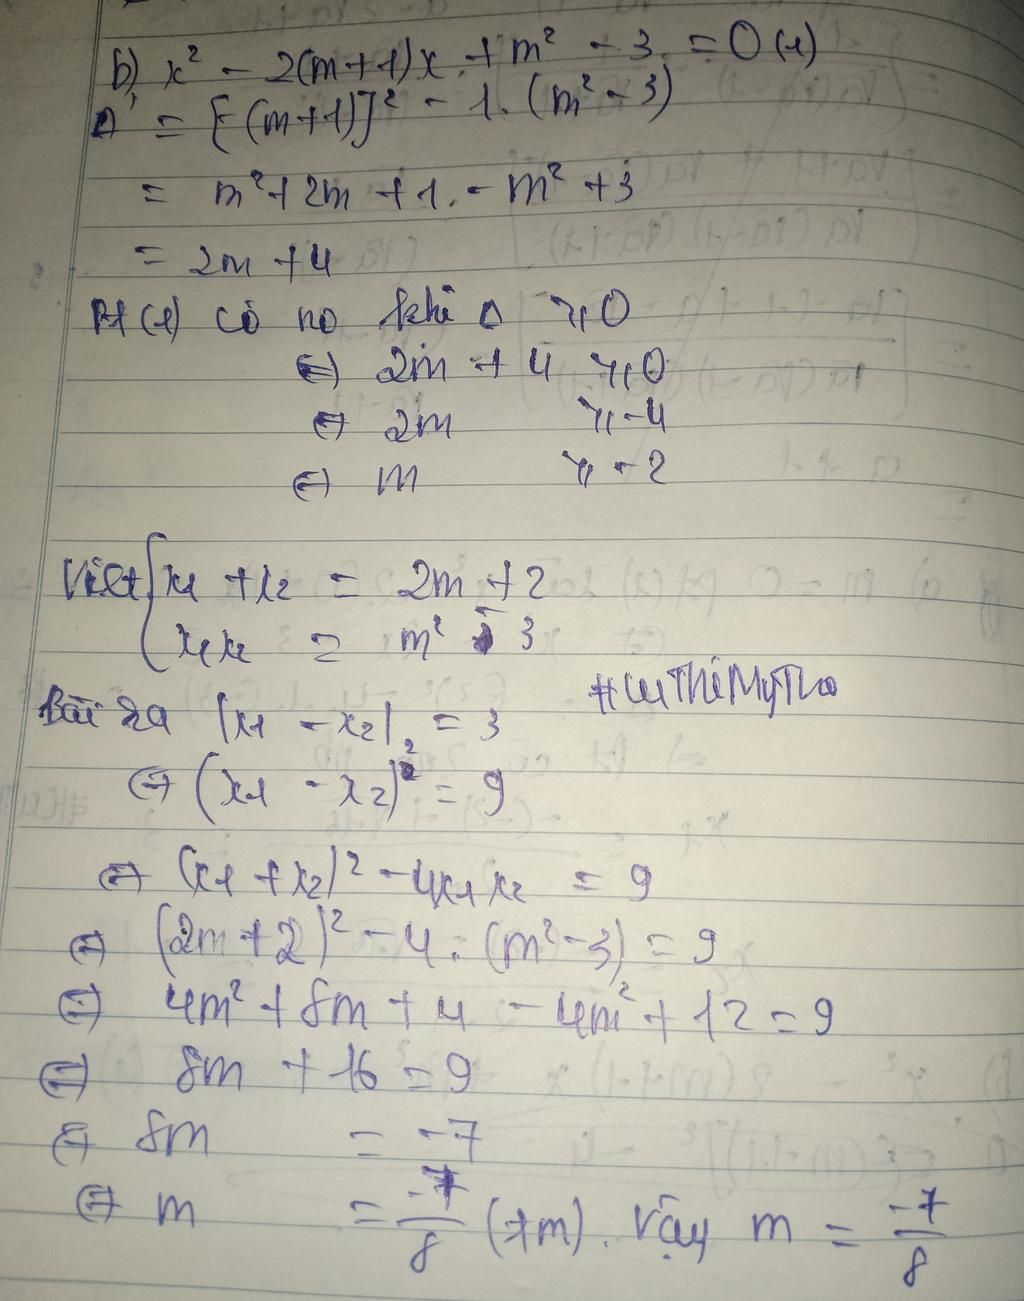 b) x² - 2(m+1)x + m² - 3 = 0 (1)
Δ' = [-(m+1)]² - 1.(m² - 3)
= m² + 2m + 1 - m² + 3
= 2m + 4
Pt (1) có no khi Δ ≥ 0
⇔ 2m + 4 ≥ 0
⇔ 2m ≥ -4
⇔ m ≥ -2
Viét { x1 + x2 = 2m + 2
x1x2 = m² - 3
#LuThiMyTho
Bài ra |x1 - x2| = 3
⇔ (x1 - x2)² = 9
⇔ (x1 + x2)² - 4x1x2 = 9
⇔ (2m+2)² - 4.(m² - 3) = 9
⇔ 4m² + 8m + 4 - 4m² + 12 = 9
⇔ 8m + 16 = 9
⇔ 8m = -7
⇔ m = -7/8 (tm). Vậy m = -7/8